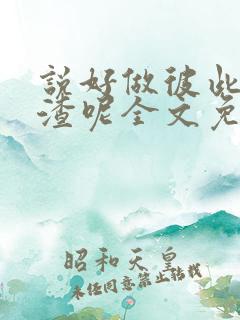 說好做彼此
渣呢全文免
昭和天皇
未任同意禁止转载